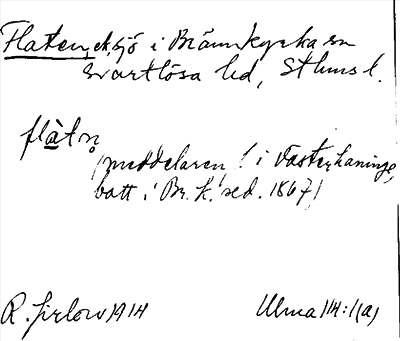 Flaten, ek, sjö i Brännkyrka sn
Svartlösa hd, Sthms l.
flàtṇ
(meddelaren f. i Västerhaninge,
bott i Br. k. sed. 1867)
R. Jirlow 1914
Ulma 114:1(a)